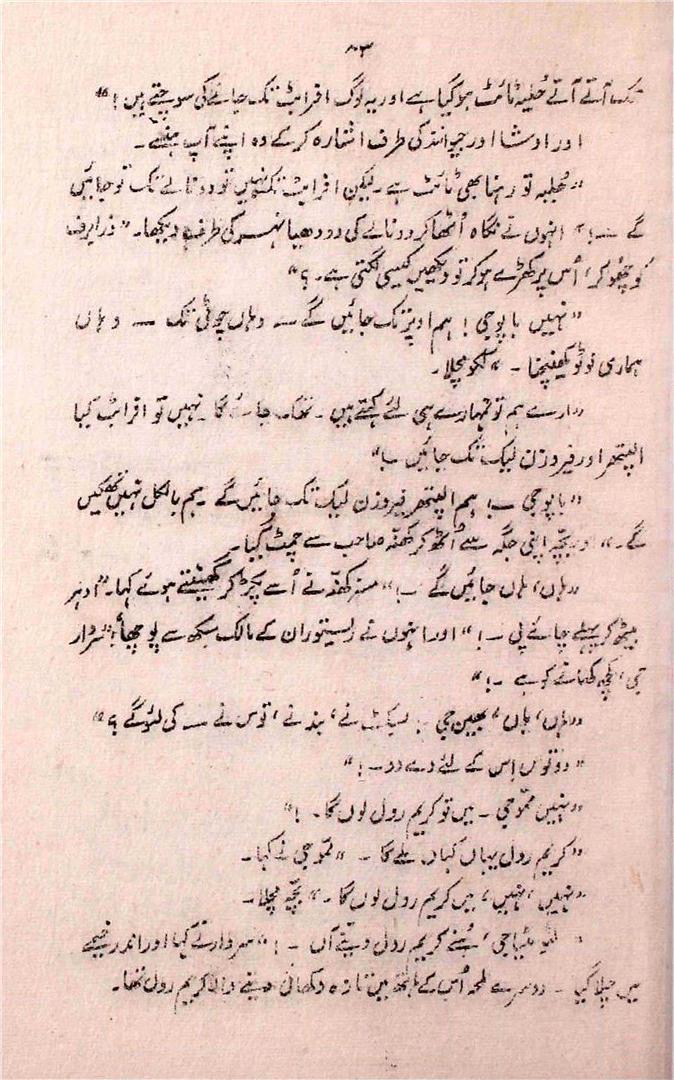 ۸۳
تک آتے آتے حُلیہ ٹائٹ ہو گیا ہے اور یہ لوگ افراہٹ تک جانے کی سوچتے ہیں !"
اور اوشا اور جیوانند کی طرف اشارہ کر کے وہ اپنے آپ ہنسے۔
"حُلیہ تو رہنا بھی ٹائٹ ہے۔ لیکن افراہٹ تک نہیں تو دونالے تک تو جائیں
گے ــ!" انہوں نے نگاہ اُٹھا کر دونالے کی دودھیا نہر کی طرف دیکھا۔ "ذرا برف
کو چھو کر، اُس پر کھڑے ہو کر تو دیکھیں کیسی لگتی ہے۔ ؟"
"نہیں باپوجی ! ہم اوپر تک جائیں گے ــ وہاں چوٹی تک ــ وہاں
ہماری فوٹو کھینچنا ۔" ککو مچلا۔
"ارے ہم تو تمہارے ہی لئے کہتے ہیں۔ تھک جائے گا۔ نہیں تو افراہٹ کیا
الپتھر اور فیروزن لیک تک جائیں ــ!"
"باپوجی ــ! ہم الپتھر فیروزن لیک تک جائیں گے۔ ہم بالکل نہیں تھکیں
گے۔" اور بچّہ اپنی جگہ سے اُٹھ کر کھنّہ صاحب سے چمٹ گیا۔
"ہاں، ہاں جائیں گے ــ!" مسز کھنّہ نے اُسے پکڑ کر گھسیٹتے ہوئے کہا۔ "ادہر
بیٹھ کر پہلے چائے پی ــ!" اور انہوں نے ریستوران کے مالک سکھ سے پوچھا "سردار
جی، کچھ کھانے کو ہے ــ!"
"ہاں، ہاں، بھین جی ! بسکٹ نے، بند نے، توس نے ــ کی لئو گے ؟"
"دو توس اِس کے لئے دے دو ــ !"
"نہیں ممّوجی ۔ میں تو کریم رول لوں گا۔ !"
"کریم رول یہاں کہاں ملے گا ۔" ممّوجی نے کہا۔
"نہیں، نہیں، میں کریم رول لوں گا ۔" بچّہ مچلا۔
"لئو بٹیا جی، ہُنے کریم رول دینے آں ــ !" سردار نے کہا اور اندر خیمے
میں چلا گیا ۔ دوسرے لمحہ اُس کے ہاتھ میں تازہ دکھائی دینے والا کریم رول تھا۔